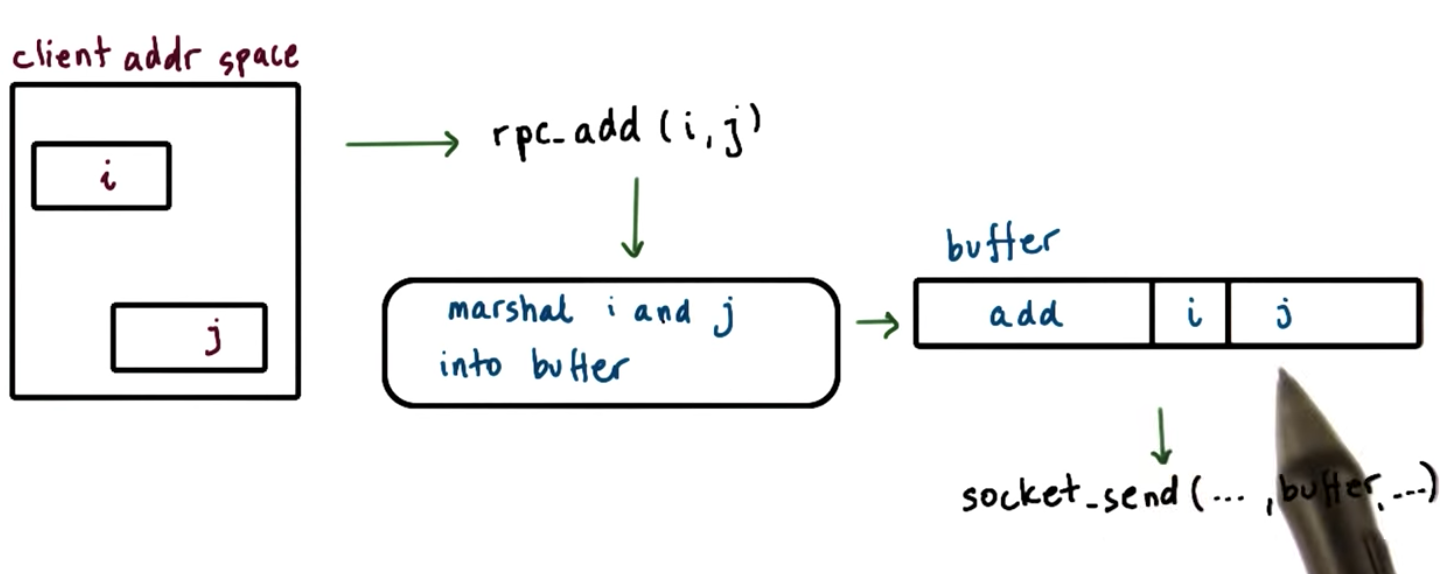 client addr space
i
j
rpc_add (i, j)
marshal i and j
into buffer
buffer
add i j
socket_send (... , buffer, ...)